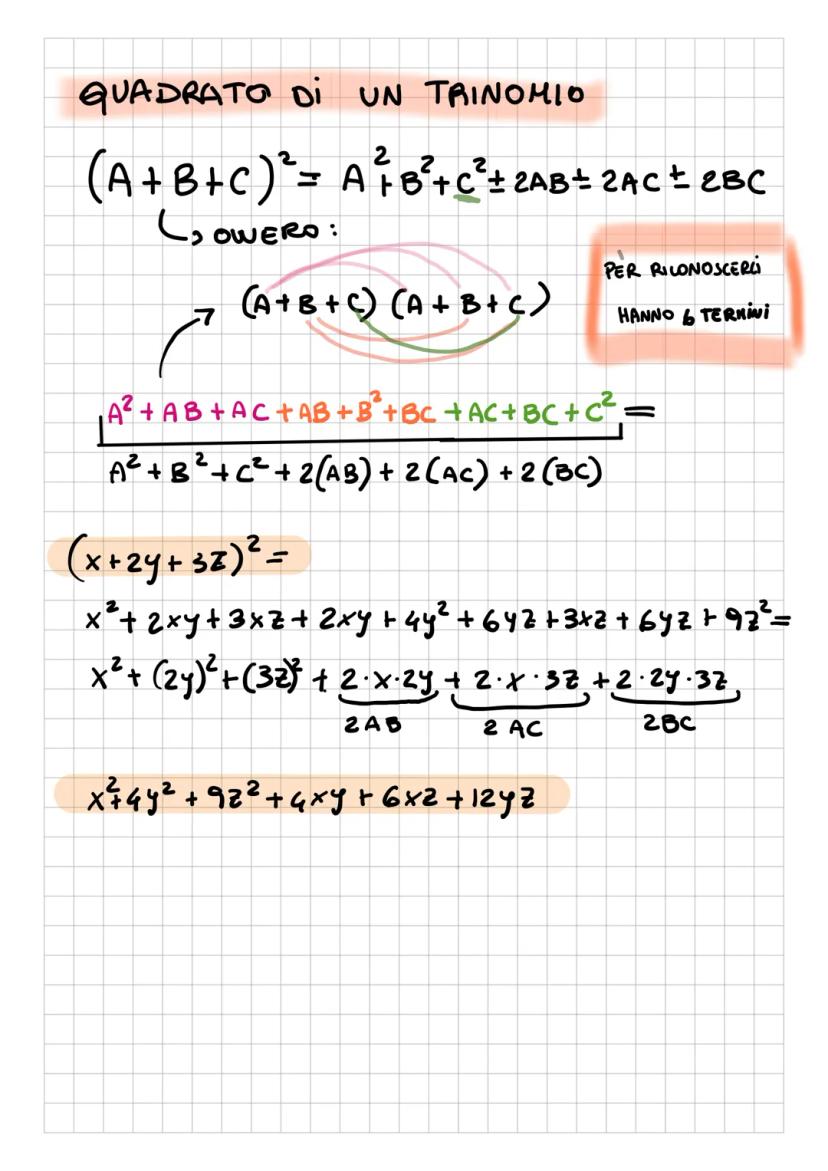 QUADRATO Di UN TRINOMIO
(A+B+C)² = A²+B²+C²±2AB±2AC±2BC
↳ OVVERO:
PER RICONOSCERLI
HANNO 6 TERMINI
(A+B+C)(A+B+C)
A²+AB+AC+AB+B²+BC+AC+BC+C²=
A²+B²+C²+2(AB)+2(AC)+2(BC)
(x+2y+3z)²=
x²+2xy+3xz+2xy+4y²+6yz+3xz+6yz+9z²=
x²+(2y)²+(3z)²+2·x·2y+2·x·3z+2·2y·3z
2AB 2AC 2BC
x²+4y²+9z²+4xy+6xz+12yz